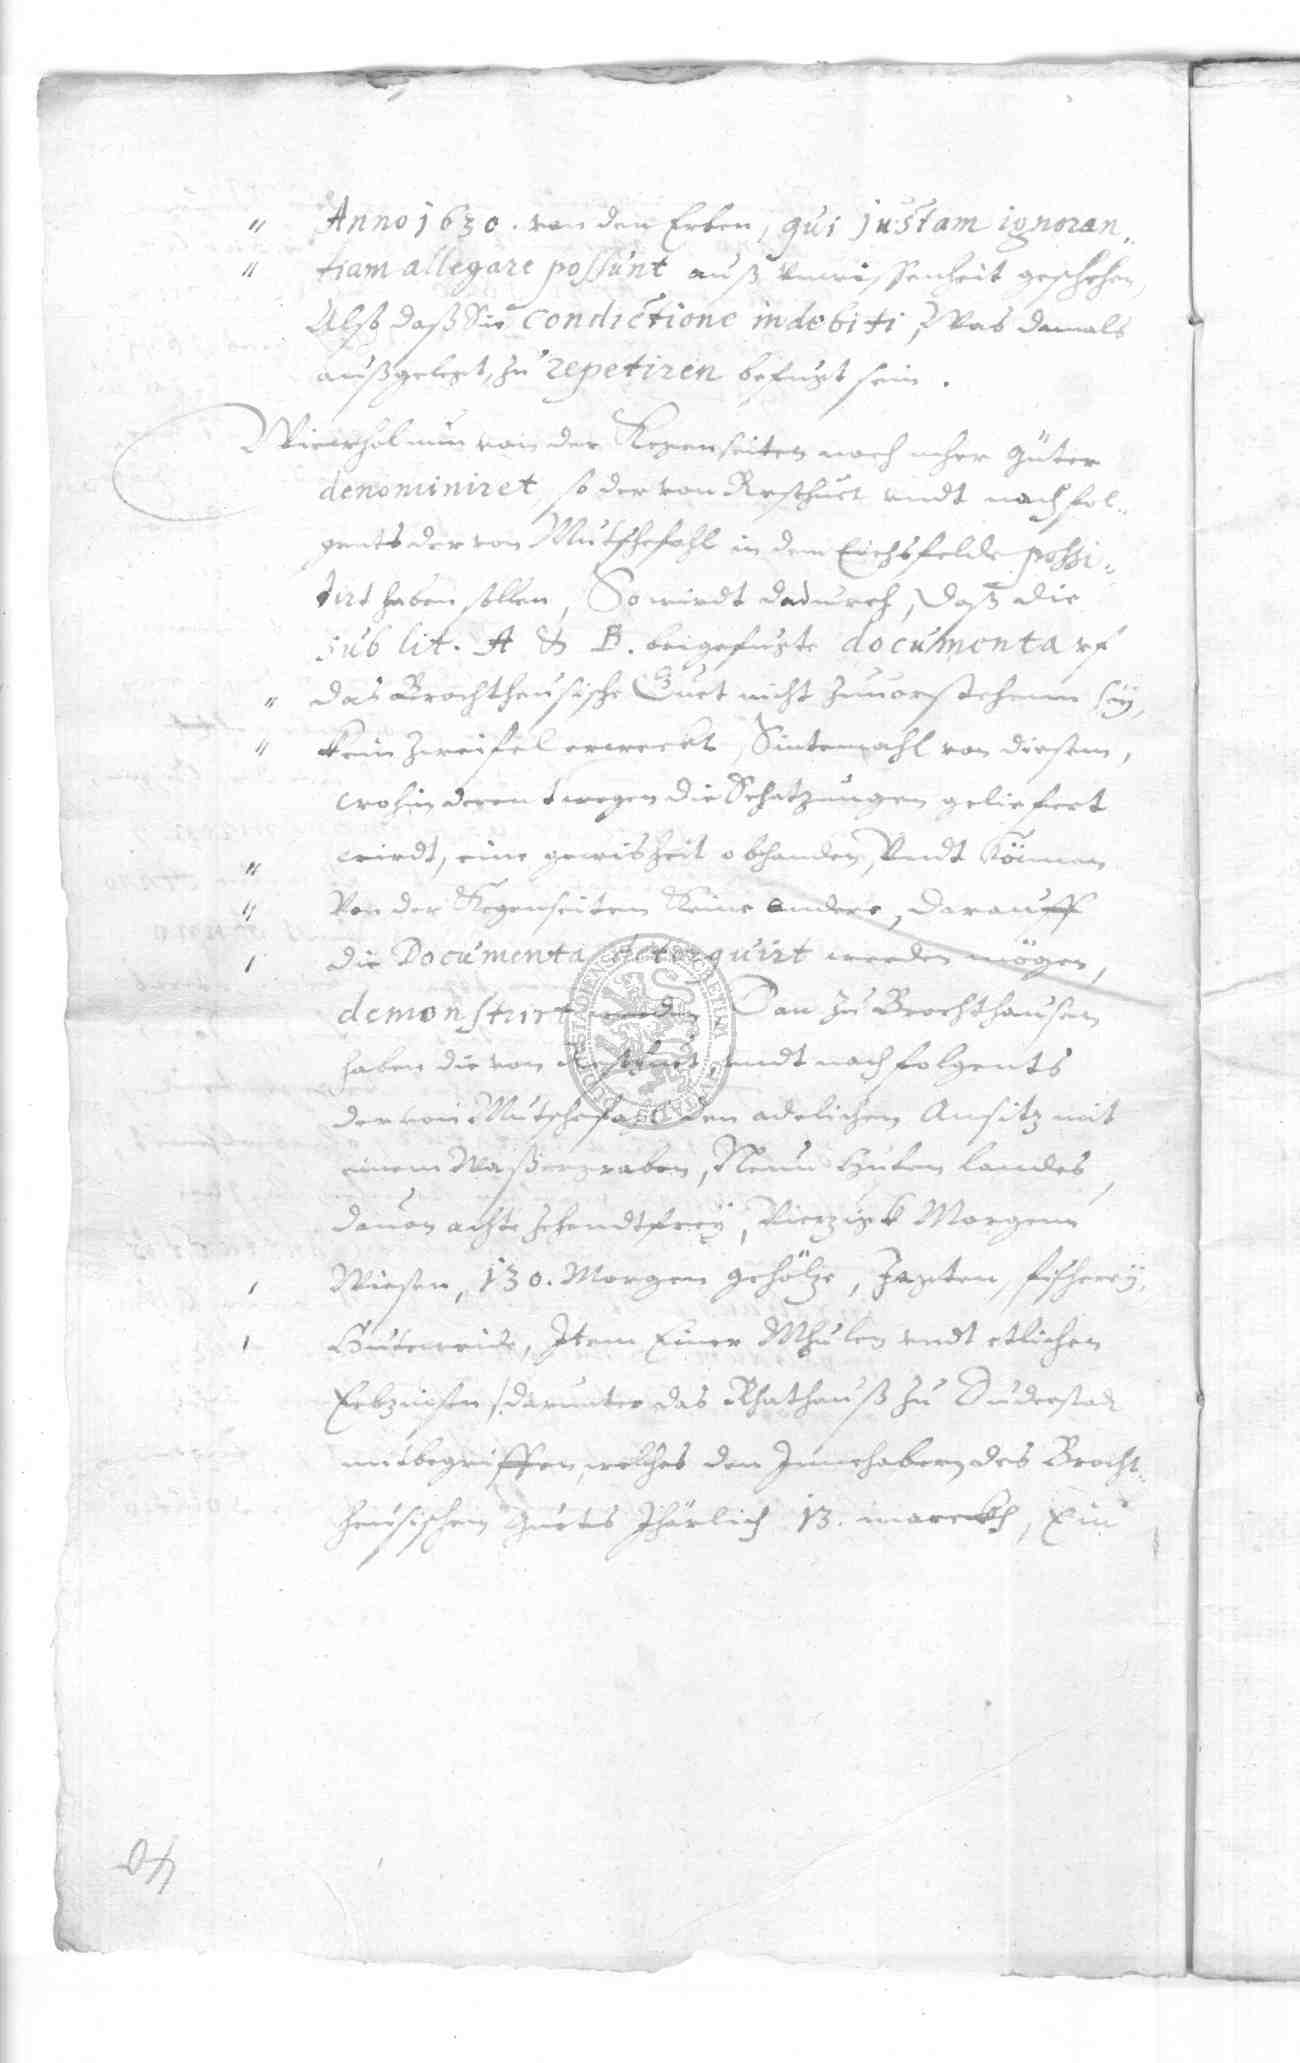 Anno 1630. von den Erben, qui justam ignoran„
tiam allegare possunt auß vnwissenheit geschehen,
Alß daß Sie condictione indebiti, Was damals
außgelegt, zu repetiren befugt sein.
Wiewohl nun von der Kegenseiten noch mher güter
denominiret, so der von Resthuet vndt nachfol„
gents der von Mutschefahl in dem Eichsfelde possi„
dirt haben sollen, So wirdt dadurch, daß die
sub lit. A & B. beigefügte documenta vf
das Brochtheusische Guet nicht zuuorstehenn sey,
kein Zweifel erweckt, Sintemahl von diesem,
wohin derentwegen die Schatzungen geliefert
wirdt, eine gewisheit obhanden, Vndt können
Von der Kegenseiten Keine andere, darauff
die Documenta detorquirt werden mögen,
demonstrirt werden, Dan zu Brochthausen
haben die von Resthuet vndt nachfolgents
der von Mutschefahl den adelichen Ansitz mit
einem Waßergraben, Neun Hufen landes,
dauon achte zehendtfrey, Vierzigk Morgenn
Wiesen, 130. Morgen gehöltze, Jagten, fischerey,
Huteweide, Item Einer Mhulen vndt etlichen
Erbzinsen, darunter das Rhathauß zu Duderstadt
mitbegriffen, welches den Innehabern des Brocht„
heusischen guets Jharlich 13. marck, Ein